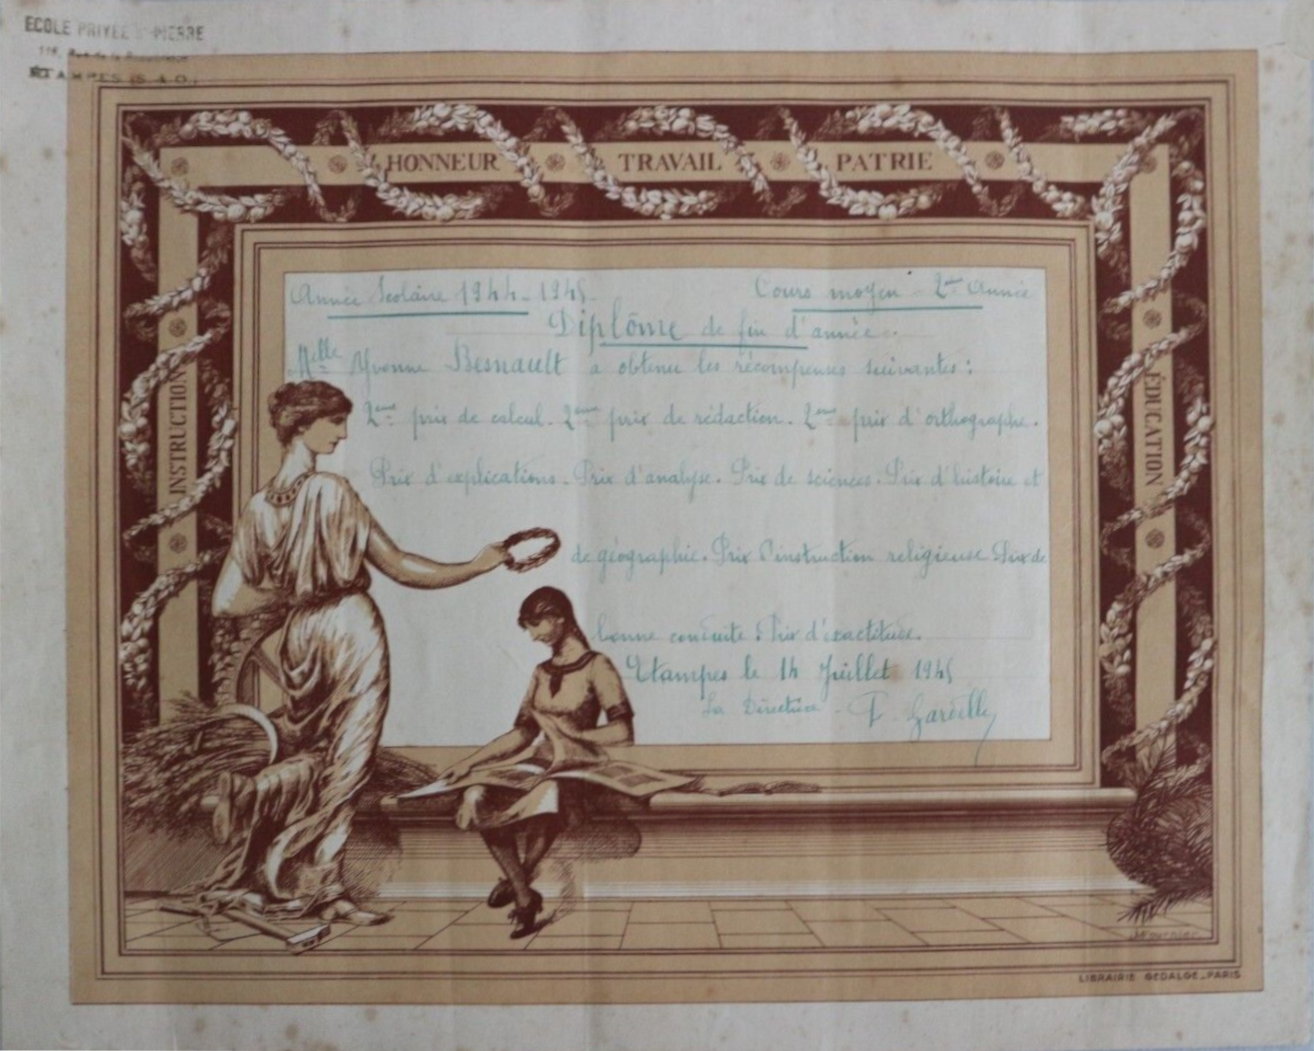 ECOLE PRIVÉE St-PIERRE
Rue de la République
ÉTAMPES (S.&O.)
HONNEUR TRAVAIL PATRIE
INSTRUCTION
ÉDUCATION
Année Scolaire 1944-1945. Cours moyen - 2ème Année
Diplôme de fin d'année.
Melle Yvonne Besnault a obtenu les récompenses suivantes:
2ème prix de calcul. 2ème prix de rédaction. 2ème prix d'orthographe.
Prix d'explications. Prix d'analyse. Prix de sciences. Prix d'histoire et
de géographie. Prix d'instruction religieuse. Prix de
bonne conduite. Prix d'exactitude.
Etampes le 14 Juillet 1945
La Directrice
J. Fournier
LIBRAIRIE GEDALGE_PARIS